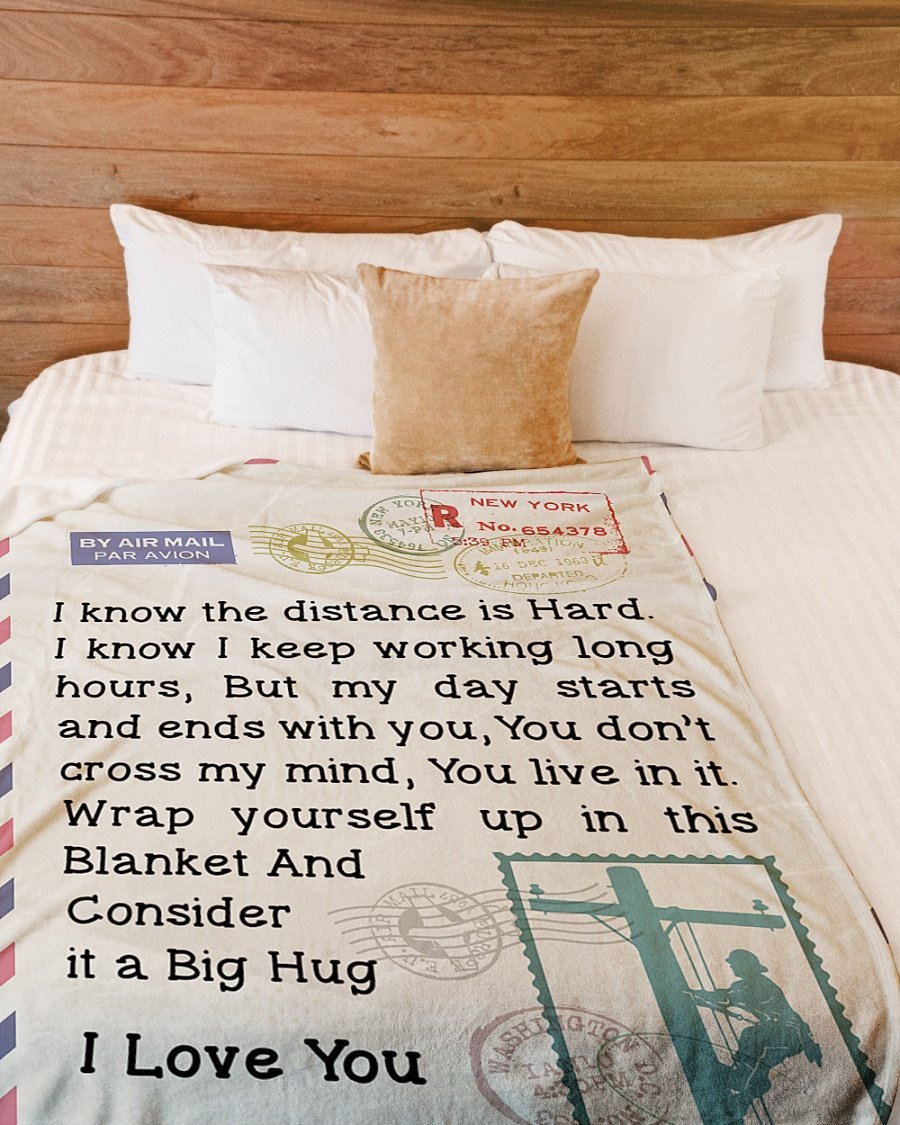 NEW YORK
R
No. 654378
5:39 PM
BY AIR MAIL
PAR AVION
NEW YORK
16 DEC 1963
DEPARTED
I know the distance is Hard.
I know I keep working long
hours, But my day starts
and ends with you, You don't
cross my mind, You live in it.
Wrap yourself up in this
Blanket And
Consider
it a Big Hug
AIR MAIL 1967
I Love You
WASHINGTON D.C.